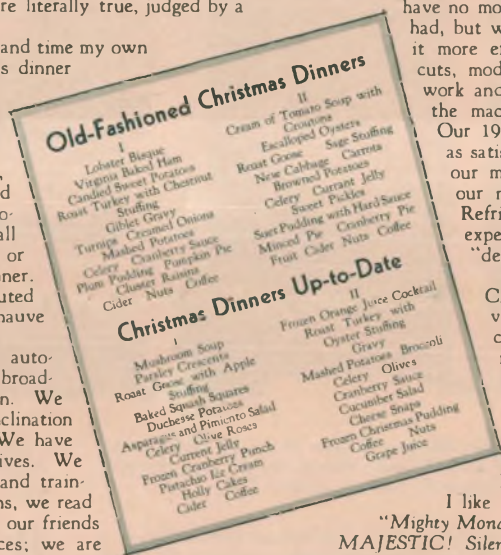 re literally true, judged by a
and time my own
s dinner
d
all
or
ner.
uted
nauve
auto-
broad-
n. We
clination
We have
ives. We
and train-
ns, we read
our friends
ces; we are
Old-Fashioned Christmas Dinners
I
Lobster Bisque
Virginia Baked Ham
Candied Sweet Potatoes
Roast Turkey with Chestnut
Stuffing
Giblet Gravy
Turnips Creamed Onions
Mashed Potatoes
Celery Cranberry Sauce
Plum Pudding Pumpkin Pie
Cluster Raisins
Cider Nuts Coffee
II
Cream of Tomato Soup with
Croutons
Escalloped Oysters
Roast Goose Sage Stuffing
New Cabbage Carrots
Browned Potatoes
Celery Currant Jelly
Sweet Pickles
Suet Pudding with Hard Sauce
Minced Pie Cranberry Pie
Fruit Cider Nuts Coffee
Christmas Dinners Up-to-Date
I
Mushroom Soup
Parsley Crescents
Roast Goose with Apple
Stuffing
Baked Squash Squares
Duchesse Potatoes
Asparagus and Pimiento Salad
Celery Olive Roses
Currant Jelly
Frozen Cranberry Punch
Pistachio Ice Cream
Holly Cakes
Cider Coffee
II
Frozen Orange Juice Cocktail
Roast Turkey with
Oyster Stuffing
Gravy
Mashed Potatoes Broccoli
Celery Olives
Cranberry Sauce
Cucumber Salad
Cheese Snaps
Frozen Christmas Pudding
Coffee Nuts
Grape Juice
have no mo
had, but w
it more e
cuts, mod
work and
the mac
Our 19
as satis
our m
our r
Refri
expe
"de
C
v
c
I like
"Mighty Mona
MAJESTIC! Silen